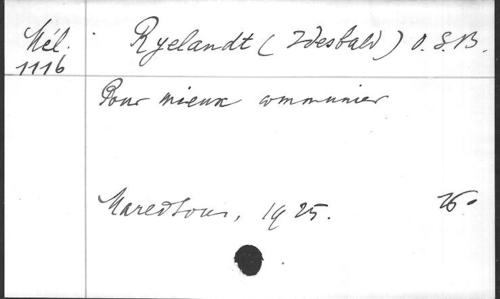 Mél. Ryelandt (Idesbald) O.S.B.
1116
Pour mieux communier
Maredsous, 1925.
16°